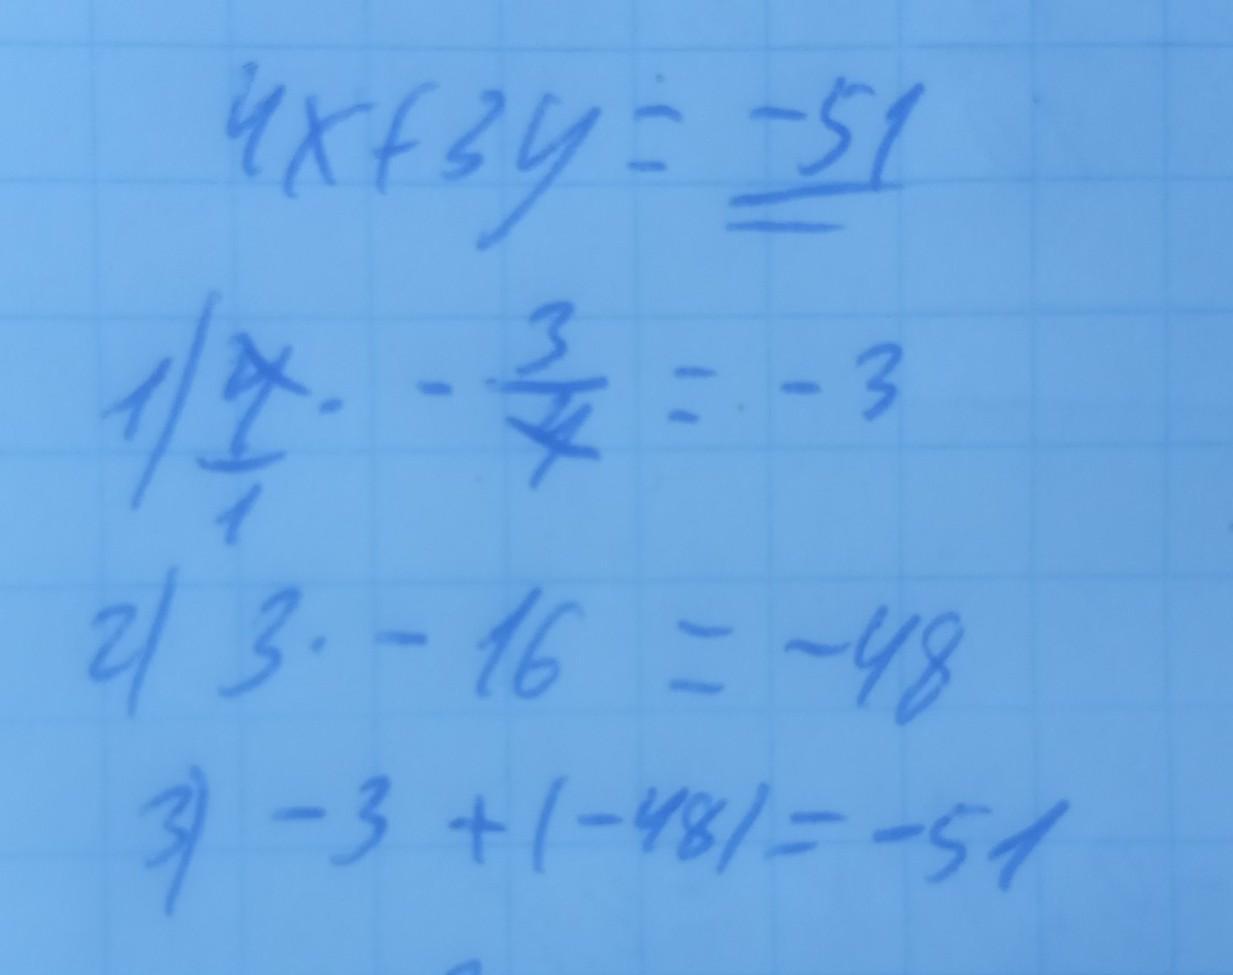 4x+3y = -51
1) 4/1 · - 3/4 = - 3
2) 3 · - 16 = -48
3) - 3 + (-48) = -51